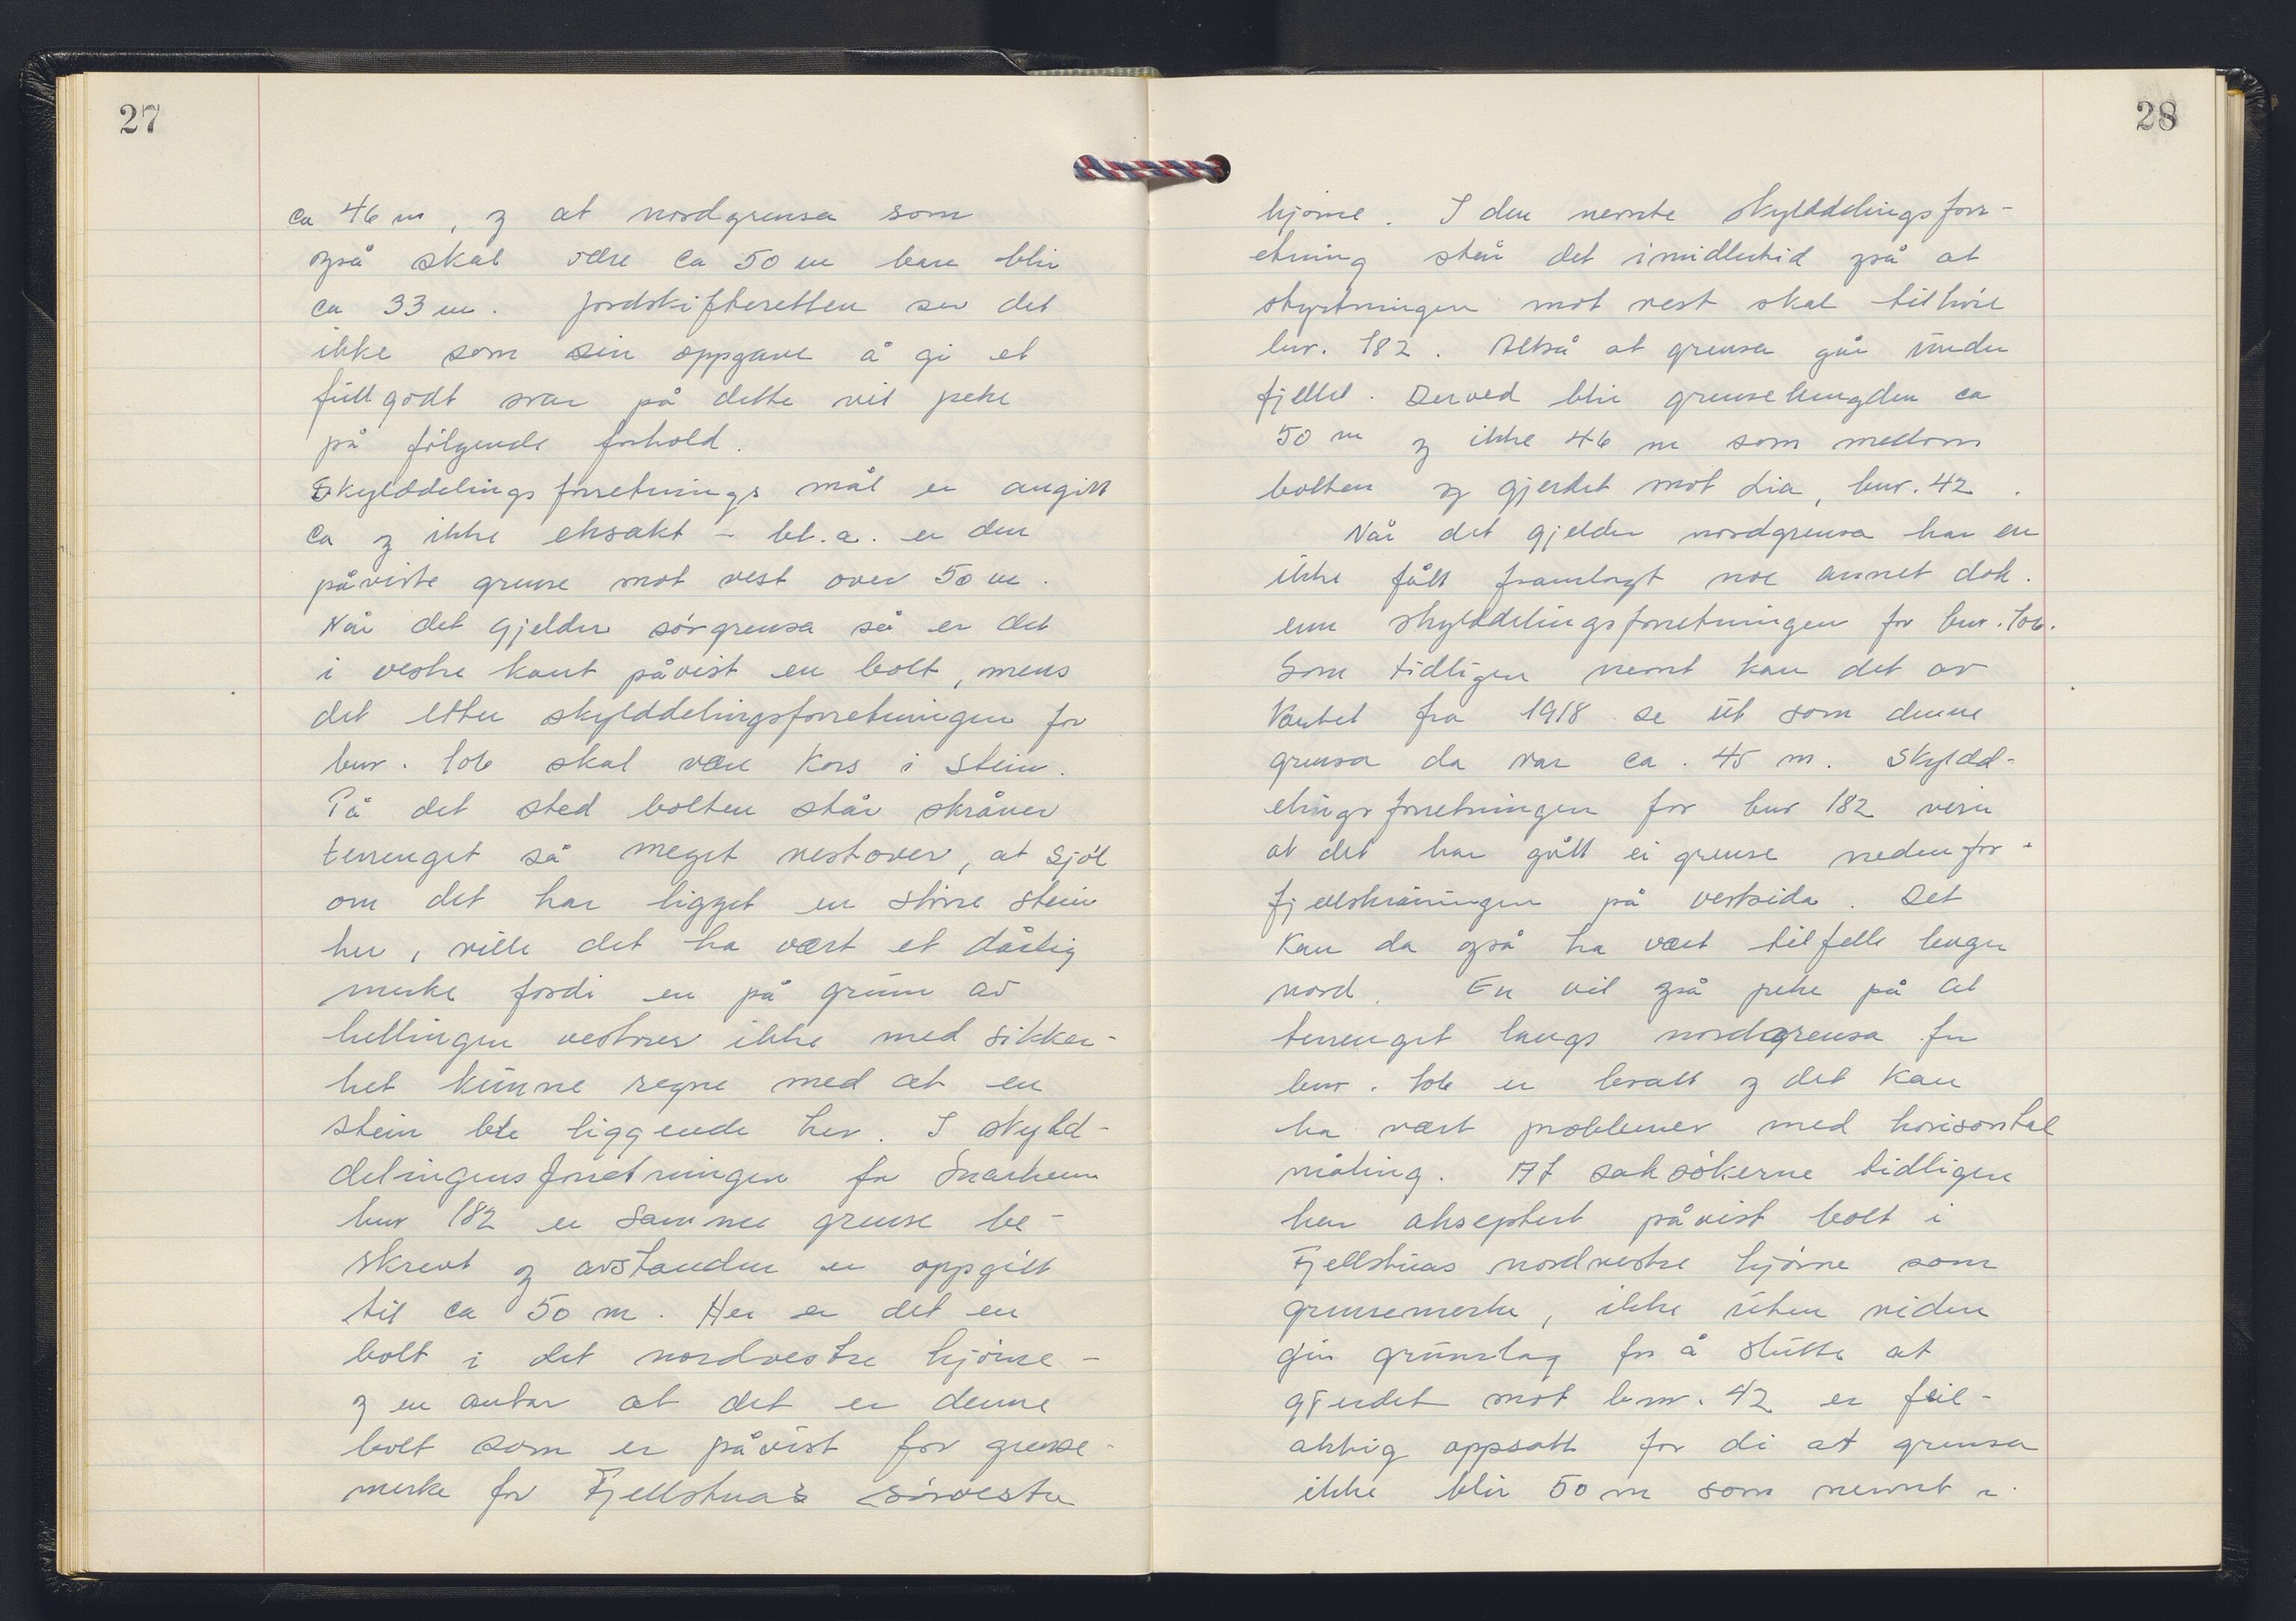 27
ca 46 m, og at nordgrensa som
også skal være ca 50 m bare blir
ca 33 m. Jordskifteretten ser det
ikke som sin oppgave å gi et
fullgodt svar på dette vil peke
på følgende forhold.
Skylddelingsforretnings mål er angitt
ca og ikke eksakt - bl.a. er den
påviste grense mot vest over 50 m.
Når det gjelder sørgrensa så er det
i vestre kant påvist en bolt, mens
det etter skylddelingsforretningen for
bnr. 106 skal være kors i stein.
På det sted bolten står skråner
terrenget så meget vestover, at sjøl
om det har ligget en større stein
her, ville det ha vært et dårlig
merke fordi en på grunn av
hellingen vestover ikke med sikker-
het kunne regne med at en
stein ble liggende her. I skyld-
delingensforretningen for Snarheim
bnr 182 er samme grense be-
skrevt og avstanden er oppgitt
til ca 50 m. Her er det en
bolt i det nordvestre hjørne -
og en antar at det er denne
bolt som er påvist for grense-
merke for Fjellstuas sørvestre
28
hjørne. I den nevnte skylddelingsforr-
etning står det imidlertid også at
styrtningen mot vest skal tilhøre
bnr. 182. Altså at grensa går under
fjellet. Derved blir grenselengden ca
50 m og ikke 46 m som mellom
bolten og gjerdet mot Lia, bnr. 42.
Når det gjelder nordgrensa har en
ikke fått framlagt noe annet dok.
enn skylddelingsforretningen for bnr. 106.
Som tidligere nevnt kan det av
kartet fra 1918 se ut som denne
grensa da var ca. 45 m. Skyldd-
elingsforretningen for bnr 182 viser
at det har gått ei grense nedenfor
fjellskråningen på vestsida. Det
kan da også ha vært tilfelle lenger
nord. En vil også peke på at
terrenget langs nordgrensa for
bnr. 106 er bratt og det kan
ha vært problemer med horisontal
måling. At saksøkerne tidligere
har akseptert påvist bolt i
Fjellstuas nordvestre hjørne som
grensemerke, ikke uten videre
gir grunnlag for å slutte at
gjerdet mot bnr. 42 er feil-
aktig oppsatt for di at grensa
ikke blir 50 m som nevnt i